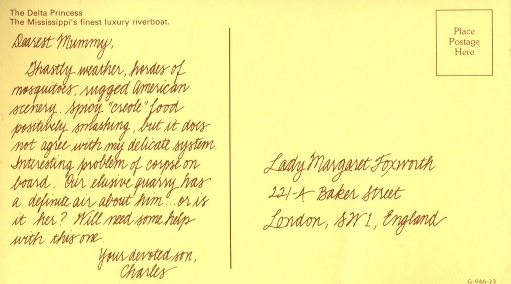 The Delta Princess
The Mississippi's finest luxury riverboat.
Dearest Mummy,
Ghastly weather, hordes of
mosquitoes, rugged American
scenery. Spicy "creole" food
positively smashing, but it does
not agree with my delicate system.
Interesting problem of corpse on
board. Our elusive quarry has
a definite air about him...or is
it her? Will need some help
with this one.
Your devoted son,
Charles
Place
Postage
Here
Lady Margaret Foxworth
221-A Baker Street
London, SW1, England
G-946-23